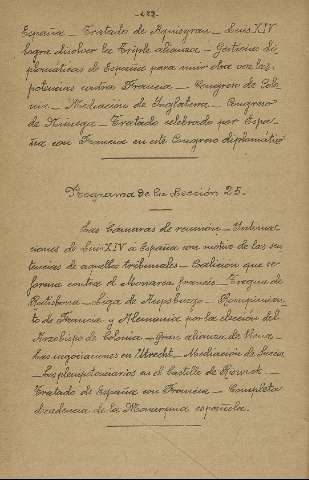 -489-
España - Tratado de Aquisgran - Luis XIV
logra disolver la Triple alianza - Gestiones di-
plomáticas de España para unir otra vez las
potencias contra Francia - Congreso de Colo-
nia - Mediación de Inglaterra - Congreso
de Nimega - Tratado celebrado por Espa-
ña con Francia en este Congreso diplomático
Programa de la Lección 25.
Las Cámaras de reunión - Intima-
ciones de Luis XIV á España con motivo de las sen-
tencias de aquellos tribunales - Coalición que se
forma contra el Monarca francés - Tregua de
Ratisbona - Liga de Augsburgo - Rompimien-
to de Francia y Alemania por la elección del
Arzobispo de Colonia - Gran alianza de Viena -
Las negociaciones en Utrecht - Mediación de Suecia -
Los plenipotenciarios en el Castillo de Riswick -
Tratado de España con Francia - Completa
decadencia de la Monarquia española.